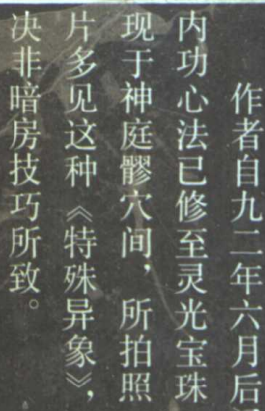 作者自九二年六月后
内功心法已修至灵光宝珠
现于神庭髎穴间，所拍照
片多见这种《特殊异象》，
决非暗房技巧所致。